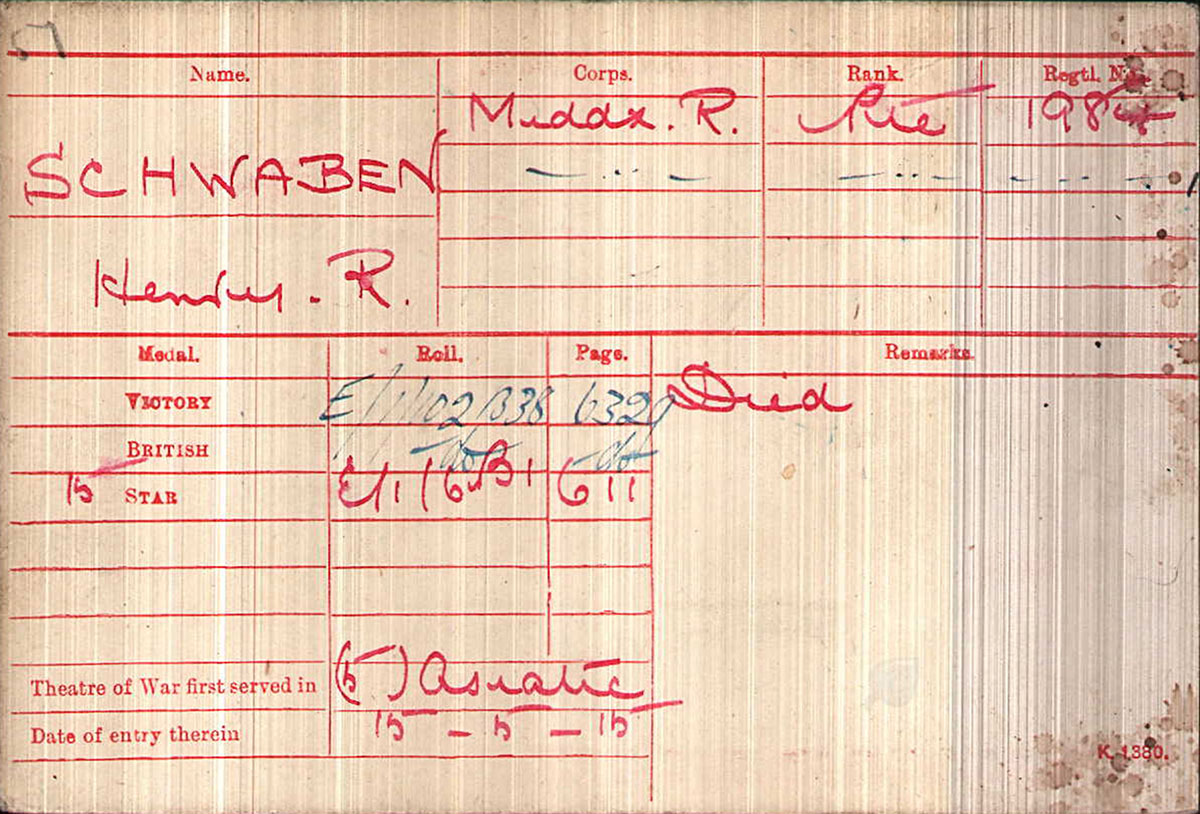 Name. Corps. Rank. Regtl. No.
SCHWABEN Middx. R. Pte
Henry. R.
Medal. Roll. Page. Remarks.
VICTORY E/1/102 B38 6329 Died
BRITISH do do
15 STAR E/1/6.B1 611
Theatre of War first served in (5) Asiatic
Date of entry therein 15 - 5 - 15
K. 1380.